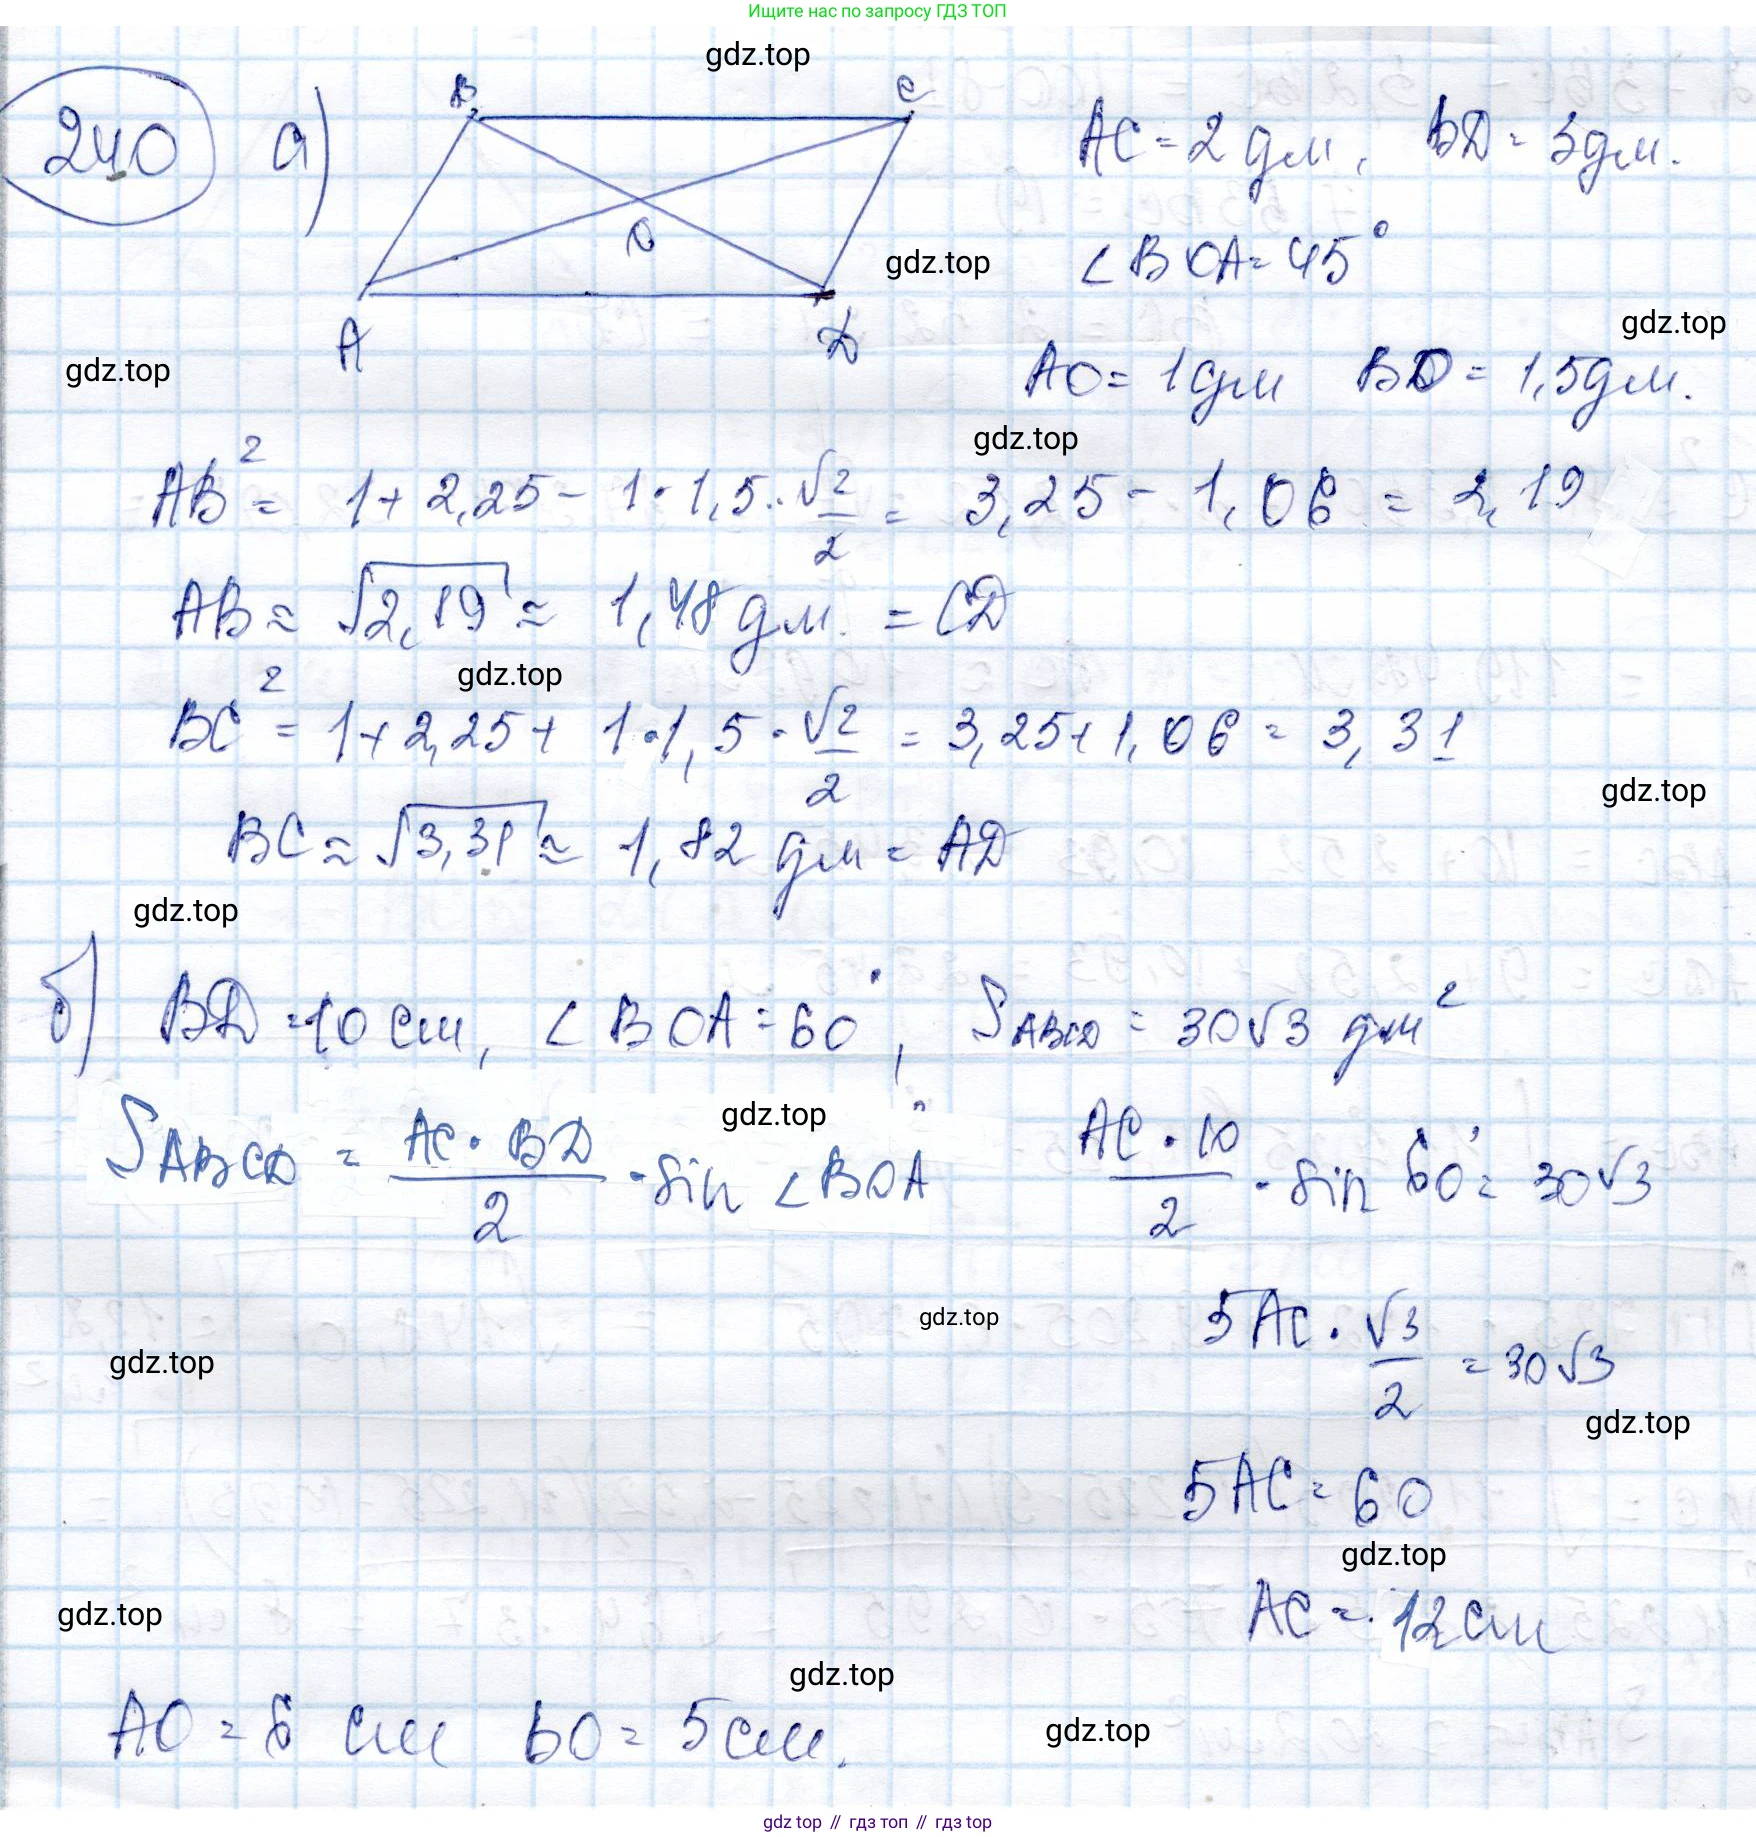 Ищите нас по запросу ГДЗ ТОП
gdz.top
240 а)
B C
O
A D
AC = 2 дм, BD = 3дм.
∠BOA = 45°
gdz.top
gdz.top
gdz.top
AO = 1дм BO = 1,5дм.
gdz.top
AB² = 1 + 2,25 - 1 · 1,5 · √2/2 = 3,25 - 1,06 = 2,19
AB ≈ √2,19 ≈ 1,48 дм. = CD
gdz.top
BC² = 1 + 2,25 + 1 · 1,5 · √2/2 = 3,25 + 1,06 = 3,31
gdz.top
BC ≈ √3,31 ≈ 1,82 дм = AD
gdz.top
б) BD = 10 см, ∠BOA = 60°, S ABCD = 30√3 дм²
gdz.top
S ABCD = AC · BD / 2 · sin ∠BOA AC · 10 / 2 · sin 60° = 30√3
gdz.top
5AC · √3/2 = 30√3
gdz.top
gdz.top
5AC = 60
gdz.top
AC = 12 см
gdz.top
gdz.top
AO = 6 см BO = 5 см.
gdz.top
gdz top // гдз топ // гдз top